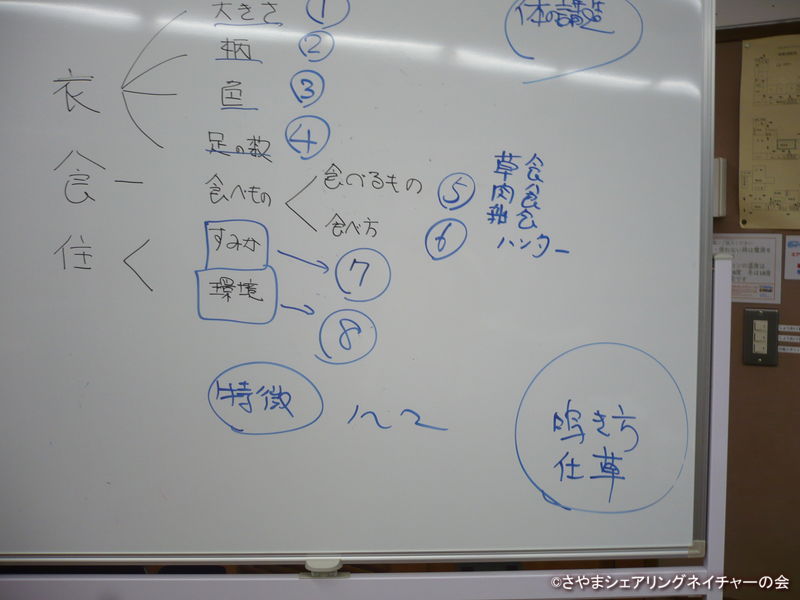 体の講造
大きさ ①
柄 ②
衣
色 ③
足の数 ④
食
食べもの
食べるもの ⑤
草食
肉食
雑食
食べ方 ⑥
ハンター
住
すみか ⑦
環境 ⑧
特徴
鳴き方
仕草
©さやまシェアリングネイチャーの会